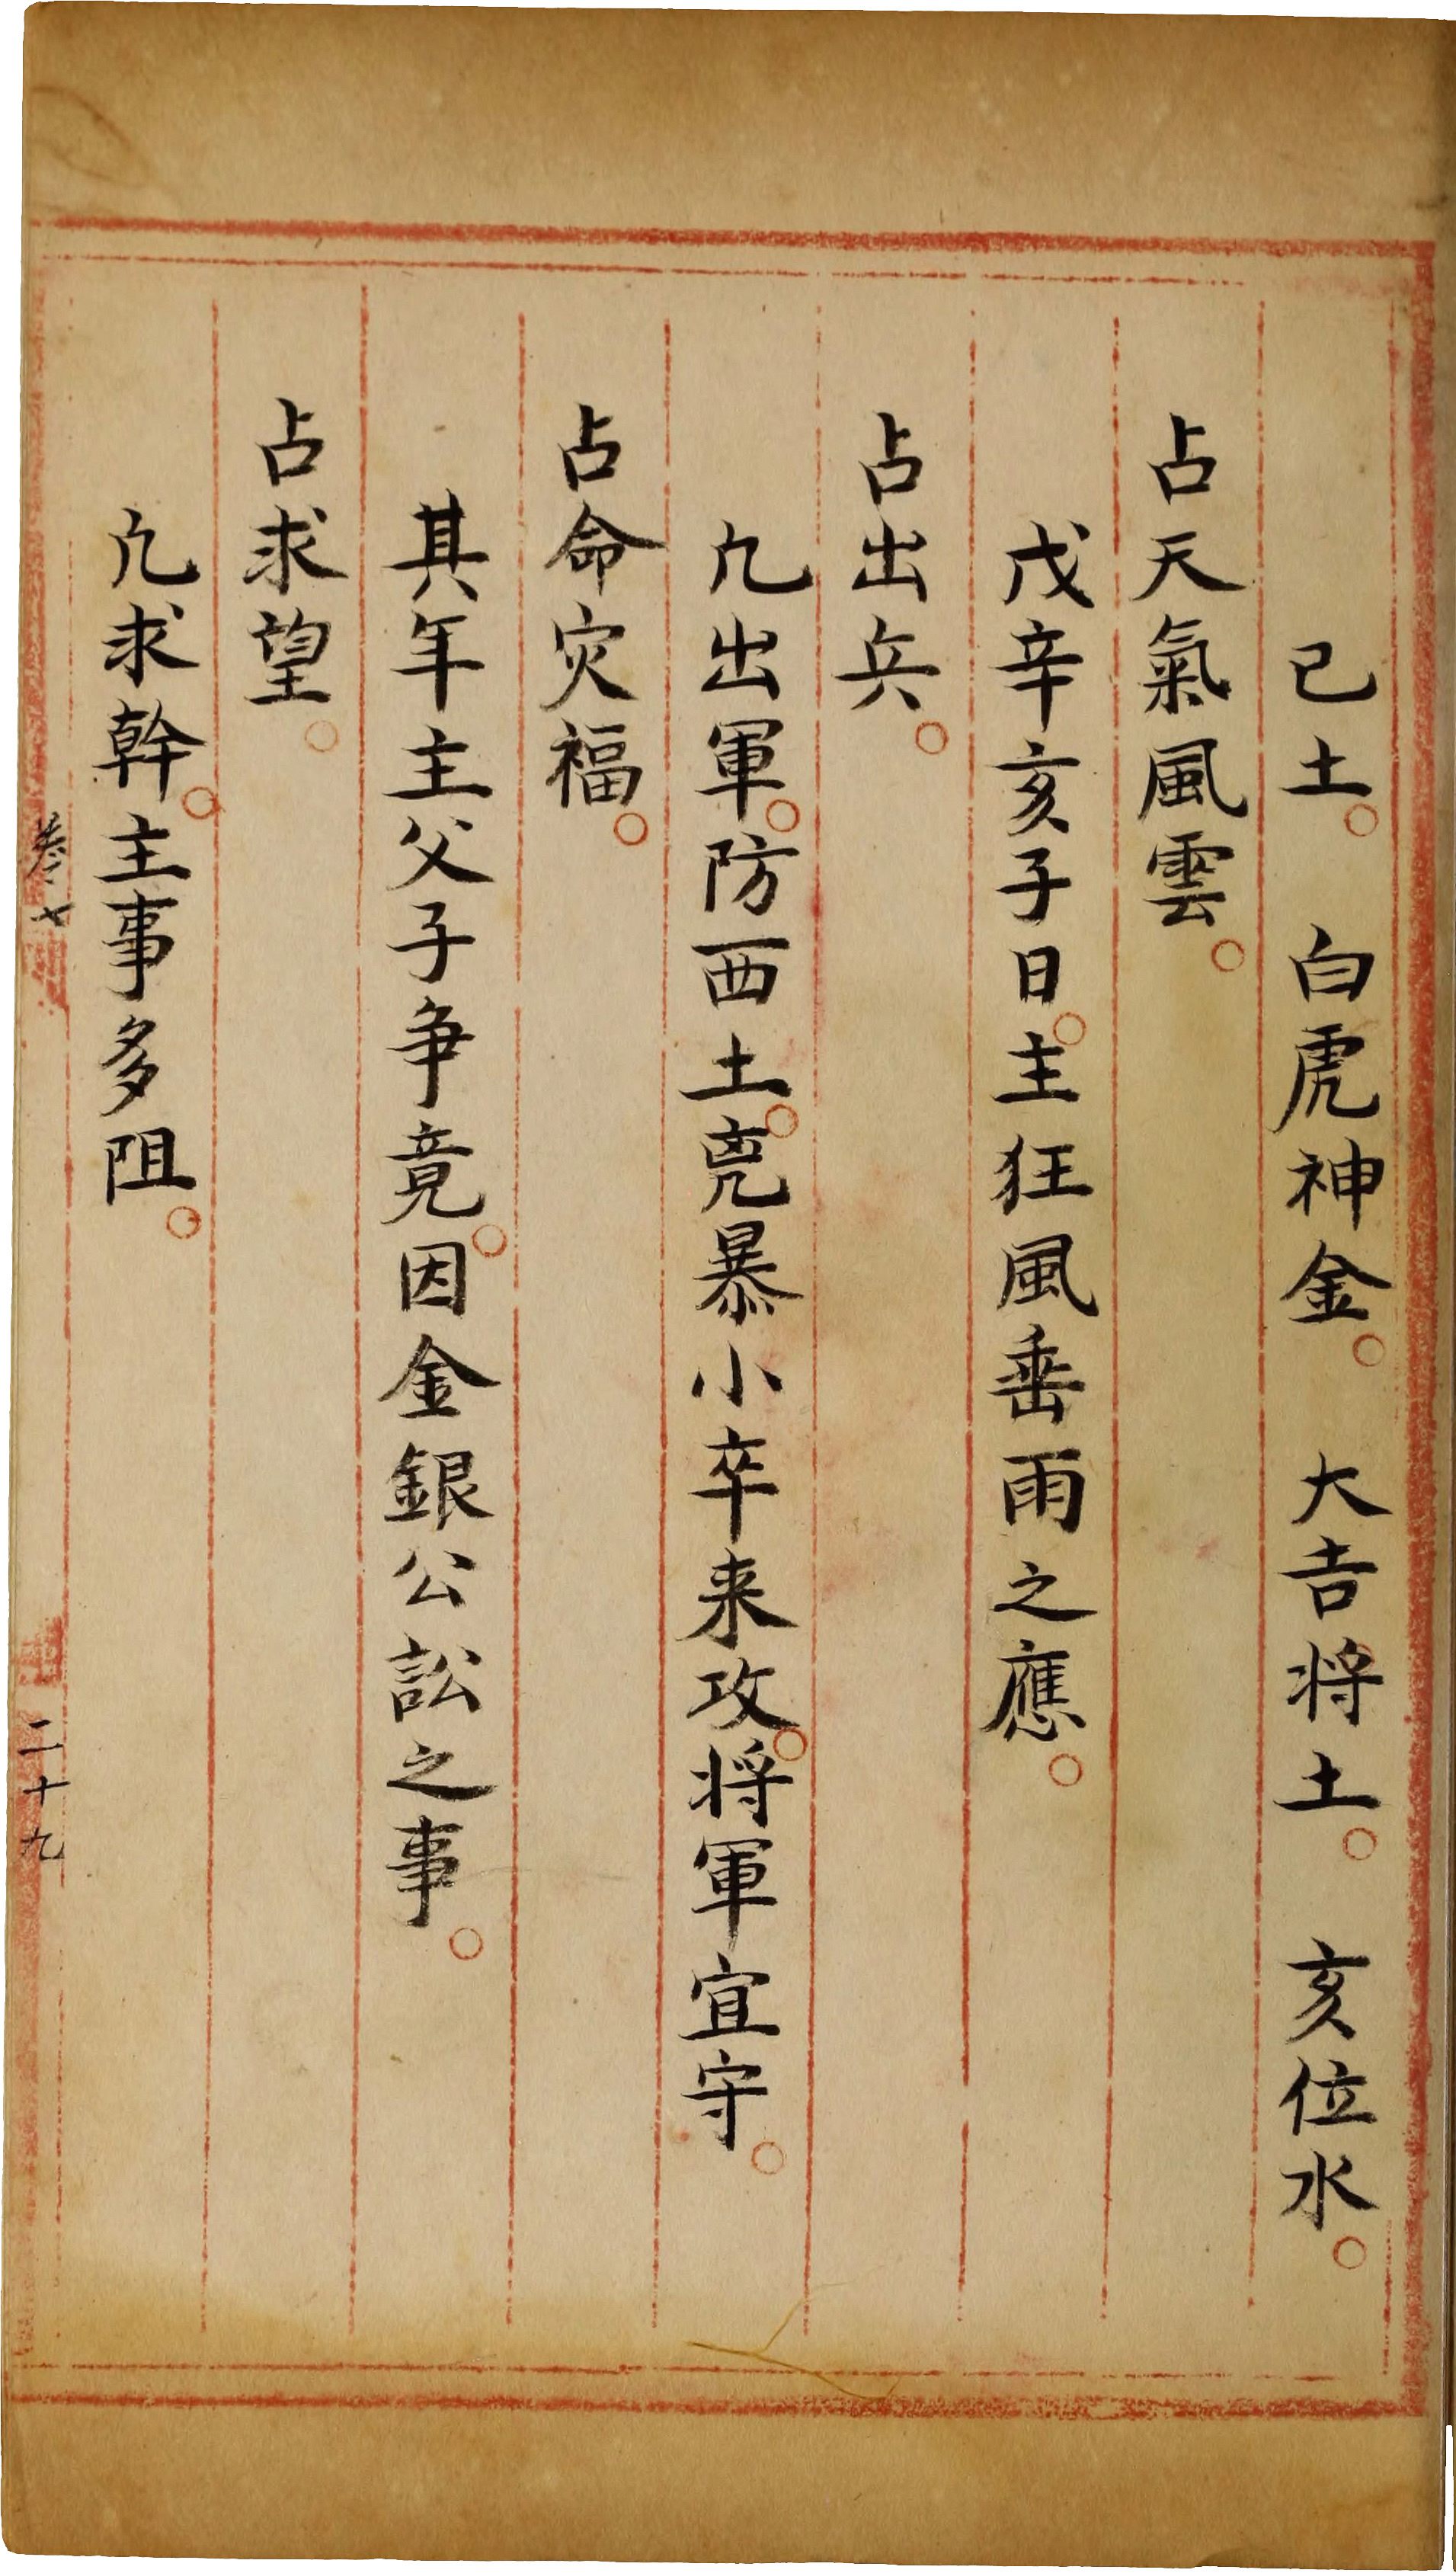 已土。　白虎神金。　大吉将土。　亥位水。
占天氣風雲。
戊辛亥子日。主狂風垂雨之應。
占出兵。
凢出軍。防西土。兇暴小卒来攻。将軍宜守。
占命灾福。
其年主父子争竟。因金銀公訟之事。
占求望。
凢求幹。主事多阻。
卷七
二十九